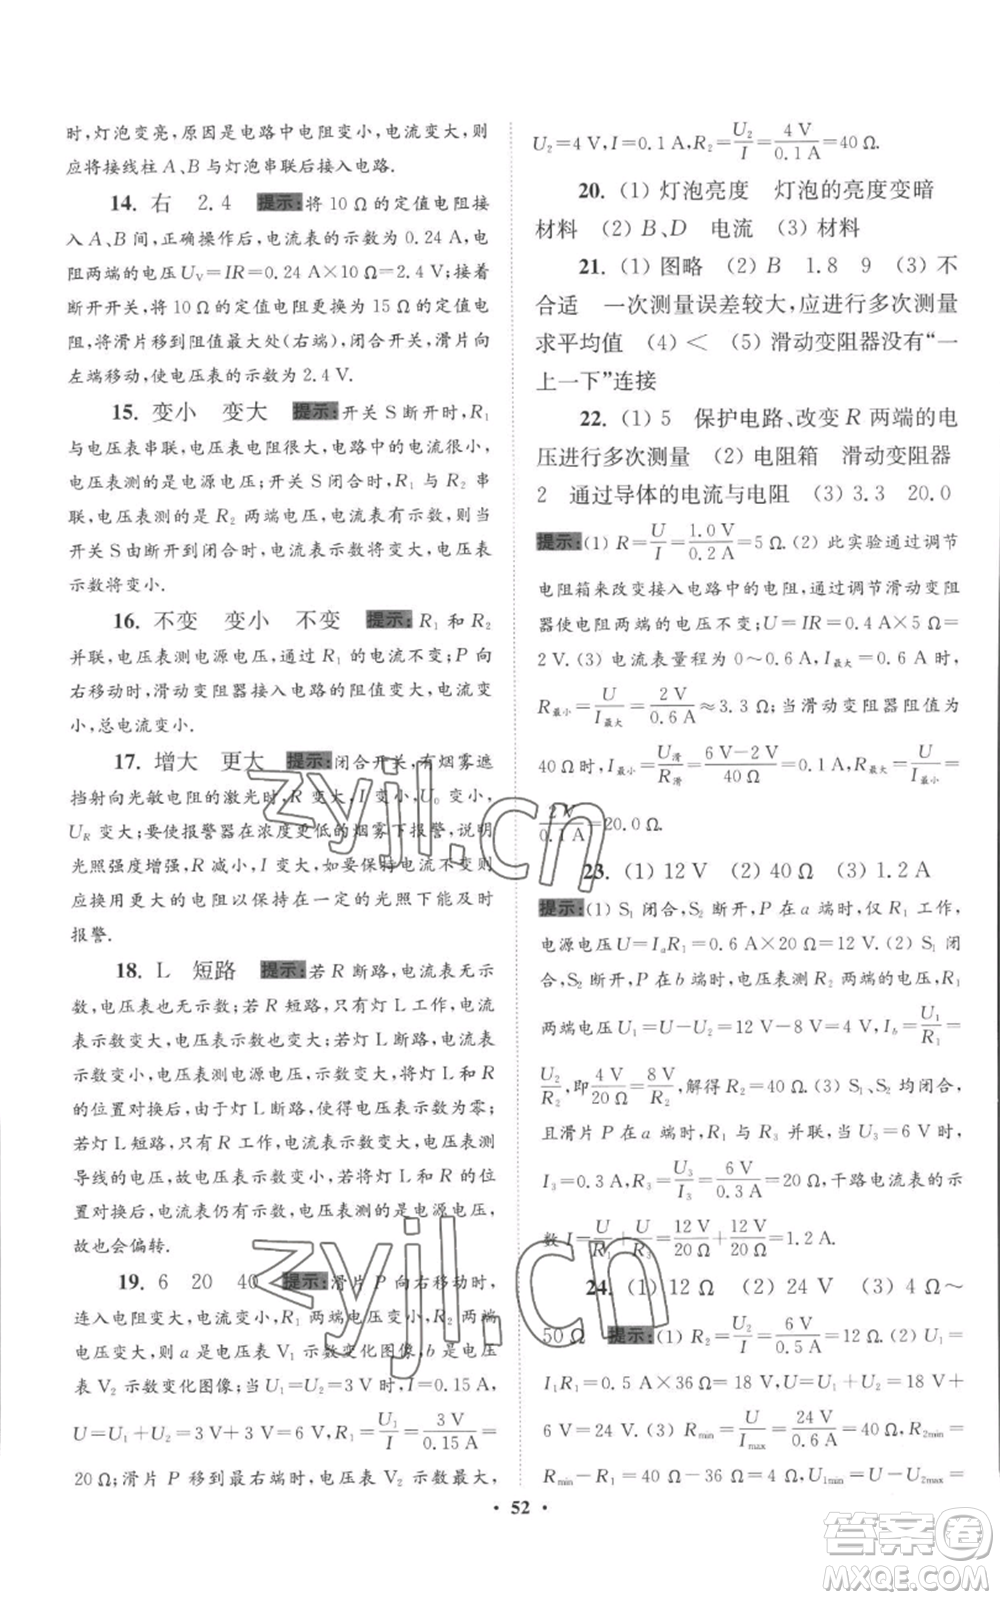 时,灯泡变亮,原因是电路中电阻变小,电流变大,则
应将接线柱 A、B 与灯泡串联后接入电路.
14. 右 2.4 提示:将 10 Ω 的定值电阻接
入 A、B 间,正确操作后,电流表的示数为 0.24 A,定值
电阻两端的电压 U_V=IR=0.24 A×10 Ω=2.4 V;接着
断开开关,将 10 Ω 的定值电阻更换为 15 Ω 的定值电
阻,将滑片移到阻值最大处(右端),闭合开关,滑片向
左端移动,使电压表的示数为 2.4 V.
15. 变小 变大 提示:开关 S 断开时,R₁
与电压表串联,电压表电阻很大,电路中的电流很小,
电压表测的是电源电压;当开关闭合时,R₁ 与 R₂ 串
联,电压表测的是 R₂ 两端电压,电流表有示数,则当
开关 S 由断开到闭合时,电流表示数将变大,电压表
示数将变小.
16. 不变 变小 不变 提示:R₁ 和 R₂
并联,电压表测电源电压,通过 R₁ 的电流不变;P 向
右移动时,滑动变阻器接入电路的阻值变大,电流变
小,总电流变小.
17. 增大 更大 提示:闭合开关,有烟雾遮
挡射向光敏电阻的激光时,R 变大,I 变小,U₀ 变小,
U_R 变大;要使报警器在浓度更低的烟雾下报警,说明
光照强度增强,R 减小,I 变大,如要保持电流不变,则
应换用更大的电阻以保持在一定的光照下能及时
报警.
18. L 短路 提示:若 R 断路,电流表无示
数,电压表也无示数;若 R 短路,只有灯 L 工作,电流
表示数变小,电压表测电源电压,将灯 L 和 R
的位置对换后,由于灯 L 断路,使得电压表示数为零;
若灯 L 短路,只有 R 工作,电流表示数变大,电压表测
导线的电压,故电压表示数变小,将灯 L 和 R 的位置
对换后,电流表仍有示数,电压表测的是电源电压,
故也会偏转.
19. 6 20 40 提示:滑片 P 向右移动时,
连入电阻变大,电流变小,R₁ 两端电压变小,R₂ 两端
电压变大,则 a 是电压表 V₁ 示数变化图像,b 是电压
表 V₂ 示数变化图像;当 U₁=U₂=3 V 时,I=0.15 A,
U=U₁+U₂=3 V+3 V=6 V,R₁=U₁/I=3 V/0.15 A=
20 Ω;滑片 P 移到最右端时,电压表 V₂ 示数最大,
U₂=4 V,I=0.1 A,R₂=U₂/I=4 V/0.1 A=40 Ω.
20. (1) 灯泡亮度 灯泡的亮度变暗
材料 (2) B、D 电流 (3) 材料
21. (1) 图略 (2) B 1.8 9 (3) 不
合适 一次测量误差较大,应进行多次测量
求平均值 (4) < (5) 滑动变阻器没有“一
上一下”连接
22. (1) 5 保护电路、改变 R 两端的电
压进行多次测量 (2) 电阻箱 滑动变阻器
2 通过导体的电流与电阻 (3) 3.3 20.0
提示:(1) R=U/I=1.0 V/0.2 A=5 Ω. (2) 此实验通过调节
电阻箱来改变接入电路中的电阻,通过调节滑动变阻
器使电阻两端的电压不变;U=IR=0.4 A×5 Ω=
2 V. (3) 电流表量程为 0~0.6 A,I最大=0.6 A 时,
R最小=U/I最大=2 V/0.6 A≈3.3 Ω;当滑动变阻器阻值为
40 Ω 时,I最小=U滑/R滑=(6 V-2 V)/40 Ω=0.1 A,R最大=U/I最小=
2 V/0.1 A=20.0 Ω.
23. (1) 12 V (2) 40 Ω (3) 1.2 A
提示:(1) S₁ 闭合,S₂ 断开,P 在 a 端时,仅 R₁ 工作,
电源电压 U=IₐR₁=0.6 A×20 Ω=12 V. (2) S₁ 闭
合,S₂ 断开,P 在 b 端时,电压表测 R₂ 两端的电压,R₁
两端电压 U₁=U-U₂=12 V-8 V=4 V,I_b=U₁/R₁=
U₂/R₂,即 4 V/20 Ω=8 V/R₂,解得 R₂=40 Ω. (3) S₁、S₂ 均闭合,
且滑片 P 在 a 端时,R₁ 与 R₃ 并联,当 U₃=6 V 时,
I₃=0.3 A,R₃=U₃/I₃=6 V/0.3 A=20 Ω,干路电流表的示
数 I=U/R₁+U/R₃=12 V/20 Ω+12 V/20 Ω=1.2 A.
24. (1) 12 Ω (2) 24 V (3) 4 Ω~
50 Ω 提示:(1) R₂=U₂/I=6 V/0.5 A=12 Ω. (2) U₁=
I₁R₁=0.5 A×36 Ω=18 V,U=U₁+U₂=18 V+
6 V=24 V. (3) Rmin=U/Imax=24 V/0.6 A=40 Ω,R₂min=
Rmin-R₁=40 Ω-36 Ω=4 Ω,U₁min=U-U₂max=
• 52 •
zyjl.cn
zyjl.cn
答案圈
MXQE.COM